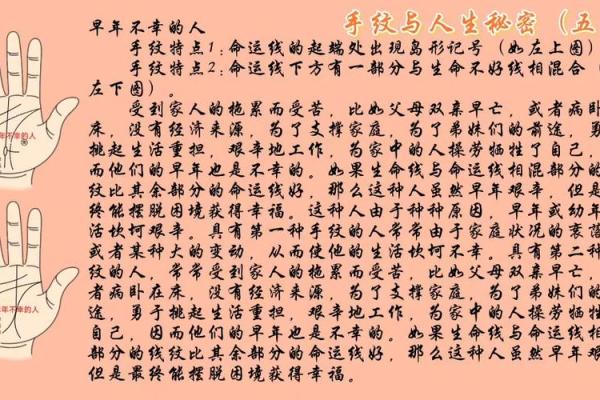 手纹与人生秘密（五
早年不幸的人
手纹特点1:命运线的起端处出现岛形记号（如左上图）
手纹特点2:命运线下方有一部分与生命不好线相混合（
左下图）。
受到家人的拖累而受苦，比如父母双亲早亡，或者病卧
床，没有经济来源，为了支撑家庭，为了弟妹们的前途，勇
挑起生活重担，艰辛地工作，为家中的人操劳牺牲了自己，
而他们的早年也是不幸的。如果生命线与命运线相混部分的
纹比其余部分的命运线好，那么这种人虽然早年艰辛，但是
终能摆脱困境获得幸福。这种人由于种种原因，早年或幼年
活坎坷艰辛。具有第一种手纹的人常常由于家庭状况的衰落
或者某种大的变动，从而使他的生活坎坷不幸。具有第二种
纹的人，常常受到家人的拖累而受苦，比如父母双亲早亡，
者病卧在床，没有经济来源，为了支撑家庭，为了弟妹们的
途，勇于挑起生活重担，艰辛地工作，为家中的人操劳牺牲
自己，因而他们的早年也是不幸的。如果生命线与命运线相
部分的线纹比其余部分的命运线好，那么这种人虽然早年艰
但是最终能摆脱困境获得幸福。
不幸的人
年不幸的人